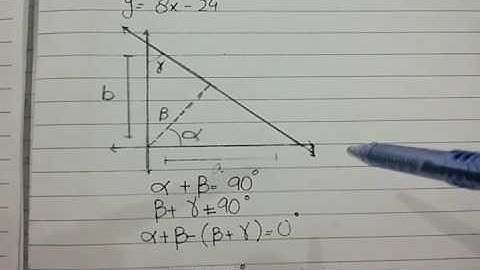 y = 8x - 24
γ
b
β
α
a
α + β = 90°
β + γ = 90°
α + β - (β + γ) = 0°